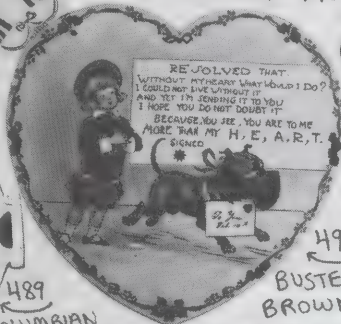 RESOLVED THAT
WITHOUT MY HEART WHAT WOULD I DO?
I COULD NOT LIVE WITHOUT IT
AND YET I'M SENDING IT TO YOU
I HOPE YOU DO NOT DOUBT IT
BECAUSE, YOU SEE, YOU ARE TO ME
MORE THAN MY H, E, A, R, T.
SIGNED
489
49
BUSTE
BROWN
UMBIAN